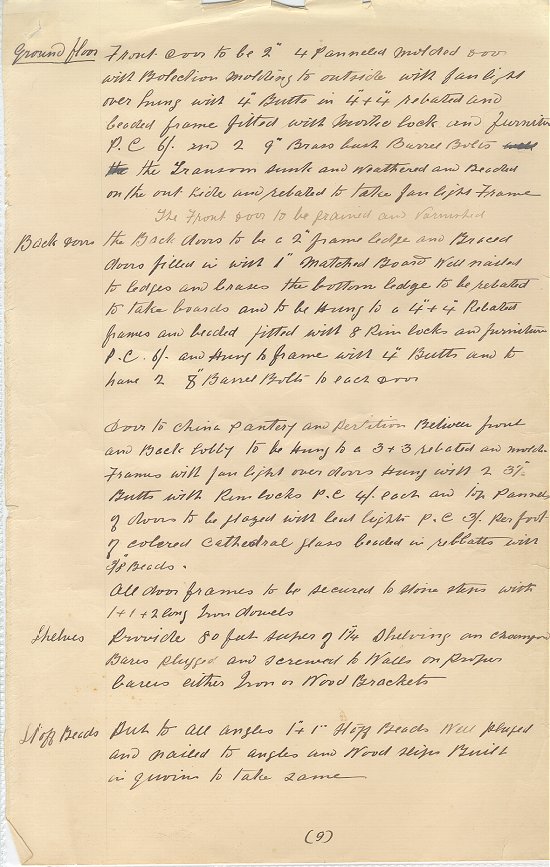 Ground floor Front door to be 2" 4 Panneled Molded door
with Bolection Molding to outside with fan light
over hung with 4" Butts in 4"+4" rebated and
beaded frame fitted with Mortice lock and furniture
P.C 6/. and 2 9" Brass bush Barrel Bolts
the Transom sunk and Weathered and Beaded
on the out side and rebated to take fan light Frame
The Front door to be grained and Varnished
Back doors the Back doors to be a 2" frame ledge and Braced
doors filled in with 1" Matched Board Well nailed
to ledges and braces the bottom ledge to be rebated
to take boards and to be Hung to a 4"+4" Rebated
frames and beaded fitted with 8 Rim locks and furniture
P.C. 6/- and Hung to frame with 4" Butts and to
have 2 8" Barrel Bolts to each door
Door to China Pantery and Pertition Between front
and Back Lobby to be Hung to a 3+3 rebated an molde
Frames with fan light over doors Hung with 2 3½"
Butts with Rim locks P.C 4/. each and top Pannels
of doors to be glazed with lead lights P.C 3/. Per foot
of colored Cathedral glass beaded in rebbatts with
3/8 Beads.
All door frames to be secured to stone steps with
1+1+2 long Iron dowels
Shelves Provide 80 feet super of 1¼ Shelving on
Bares plugged and screwed to Walls on Proper
barers either Iron or Wood Brackets
Stopp Beads Put to all angles 1"+1" Stopp Beads Well pluged
and nailed to angles and Wood slips Built
in quoins to take same
(9)